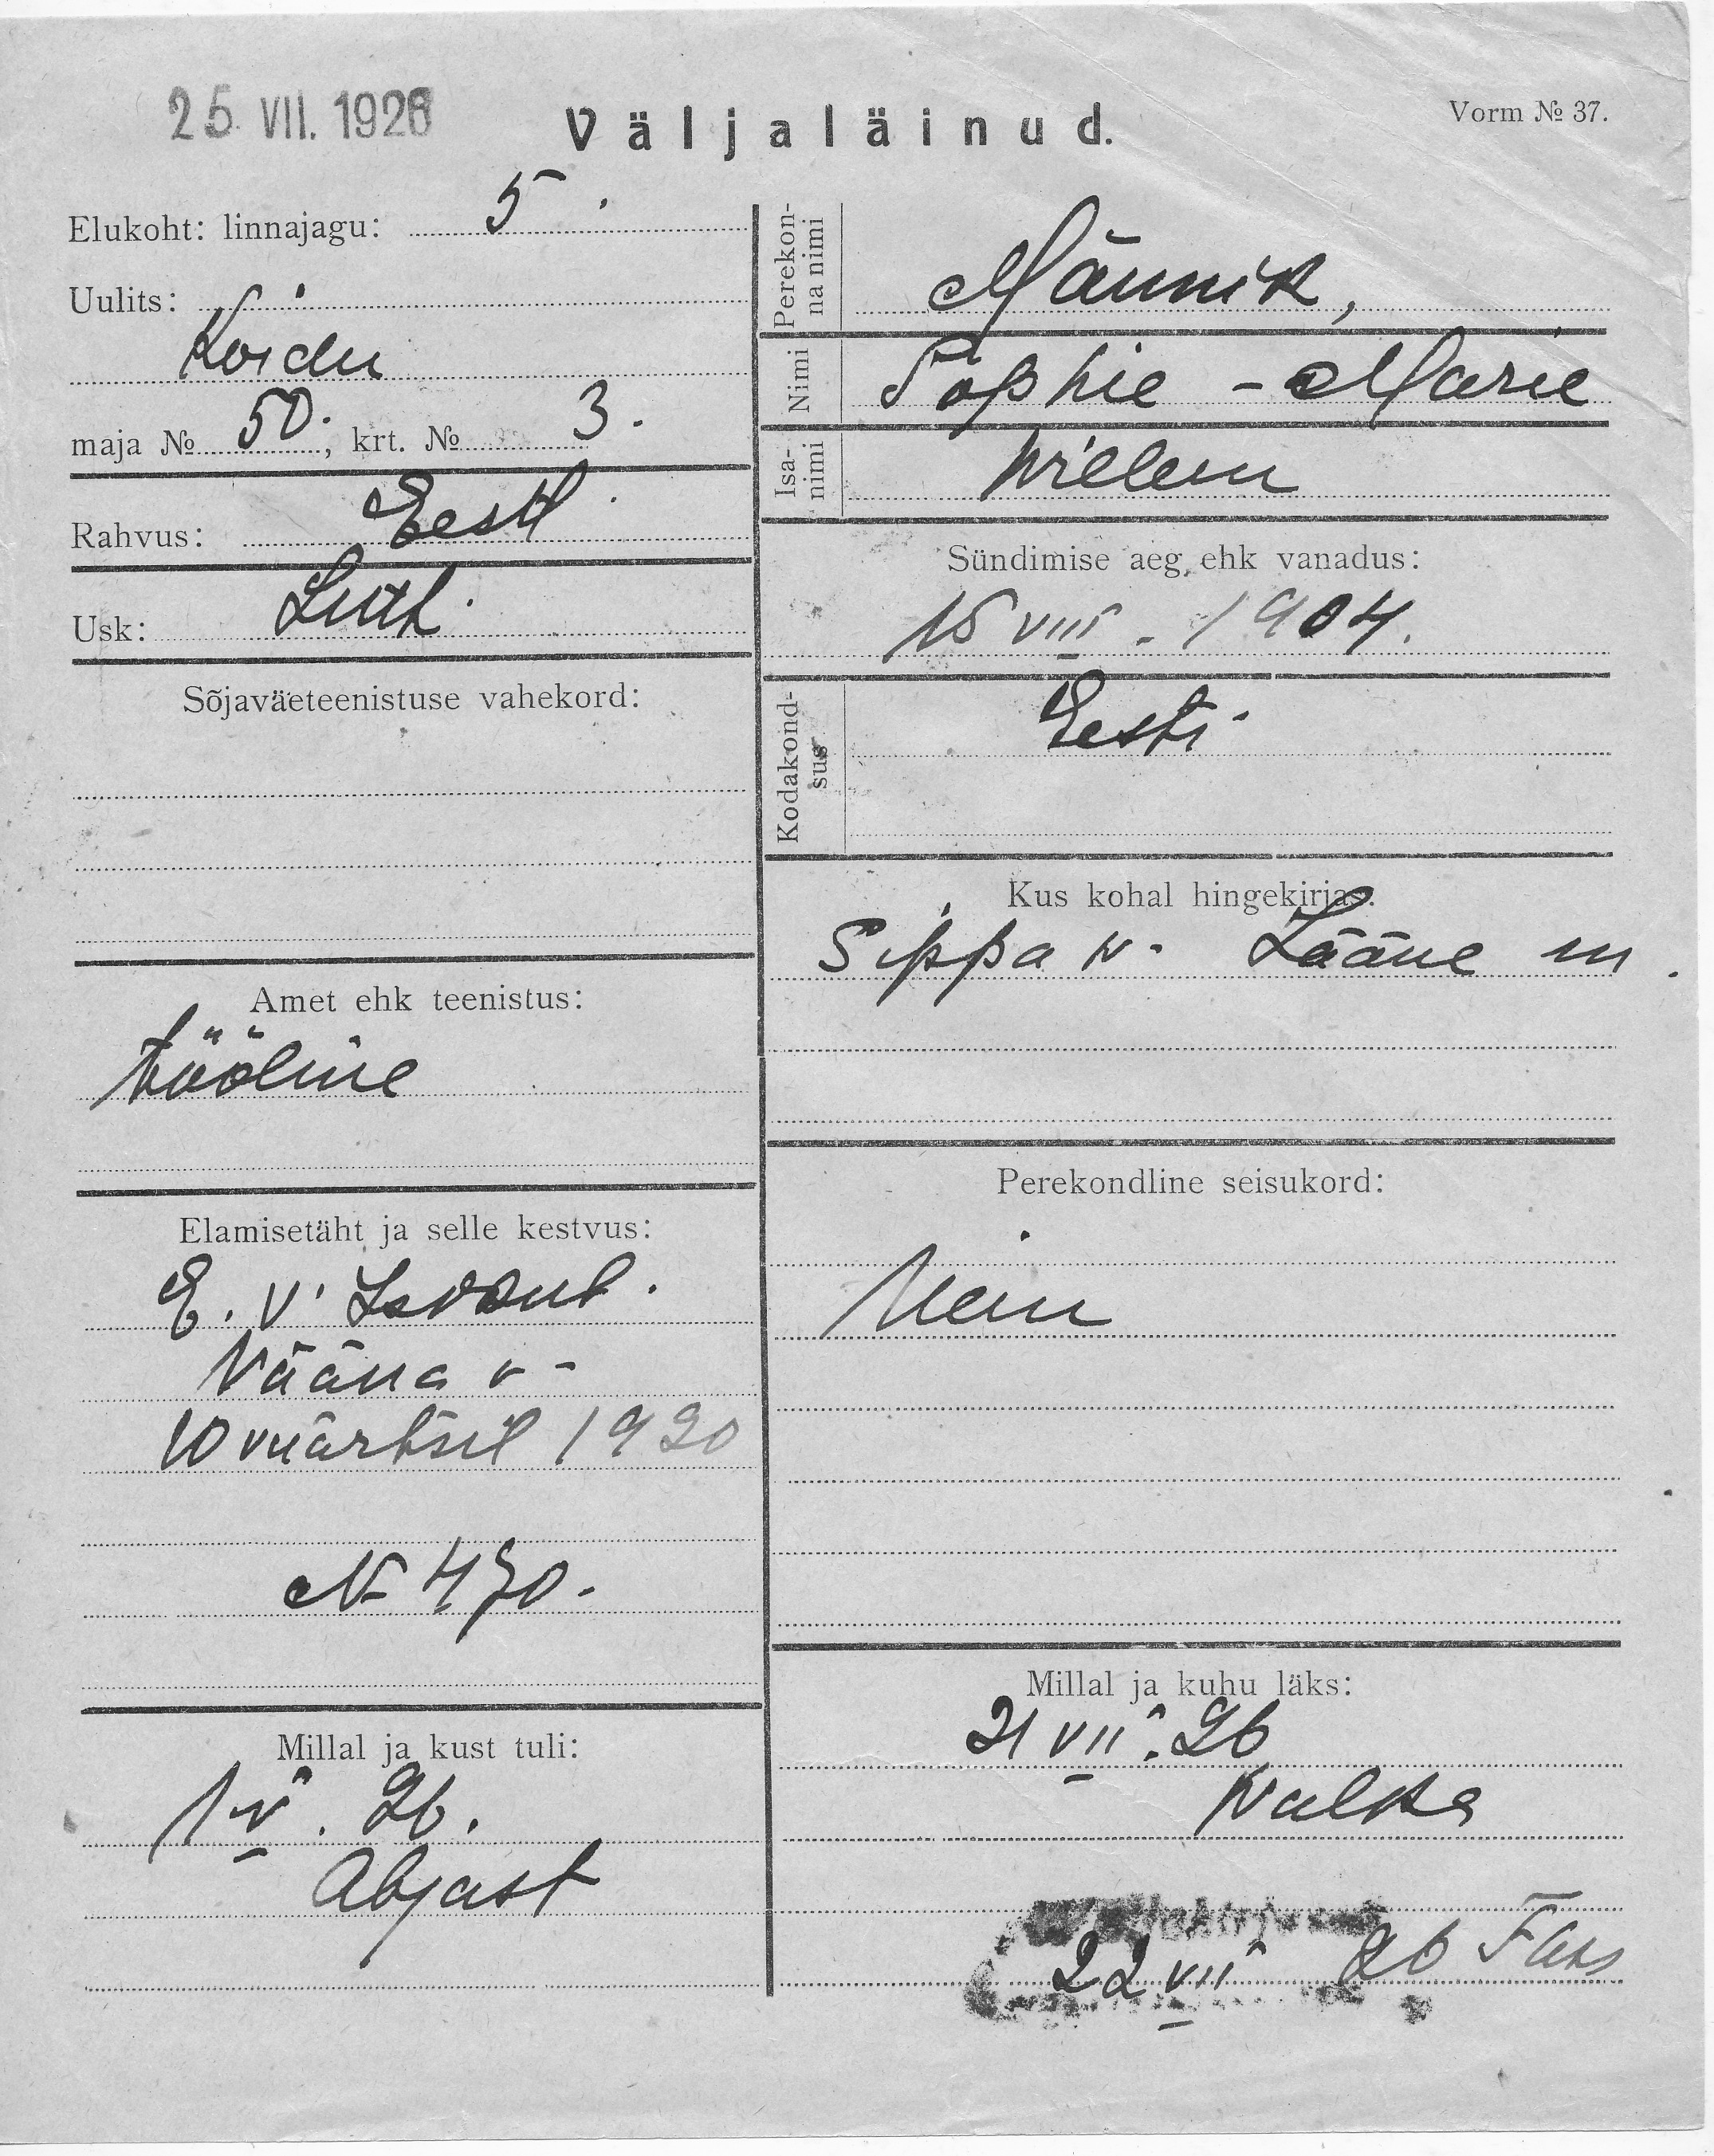 25. VII. 1926
Väljaläinud.
Vorm № 37.
Elukoht: linnajagu: 5.
Uulits:
Koidu
maja № 50., krt. № 3.
Rahvus: Eestl.
Usk: Luth.
Sõjaväeteenistuse vahekord:
Amet ehk teenistus:
tööline
Elamisetäht ja selle kestvus:
E. V.
Vääna v-
10 märtsil 1920
№ 470.
Millal ja kust tuli:
1 V. 26.
Abjast
Perekon-
na nimi
Männik,
Nimi
Sophie - Marie
Isa-
nimi
Willem
Sündimise aeg ehk vanadus:
15 VIII. 1904.
Kodakond-
sus
Eesti
Kus kohal hingekirjas:
Sippa w. Lääne m.
Perekondline seisukord:
Millal ja kuhu läks:
21 VII. 26
Walka
22 VII 26